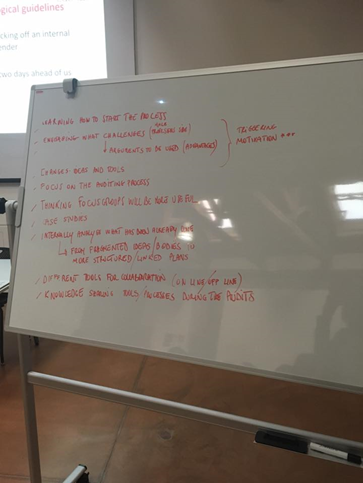 ogical guidelines
cking off an internal
ender
two days ahead of us
LEARNING HOW TO START THE PROCESS
WHAT CHALLENGES
ARGUMENTS TO BE USED (ADVANTAGES)
TRIGGERING
MOTIVATION
IDEAS AND TOOLS
FOCUS ON THE AUDITING PROCESS
THINKING FOCUS GROUPS WILL BE MORE USEFUL
CASE STUDIES
INTERNALLY ANALYSE WHAT HAS BEEN ALREADY DONE
FROM FRAGMENTED IDEAS/BODIES
MORE STRUCTURED/LINKED PLANS
DIFFERENT TOOLS FOR COLLABORATION (ON LINE/OFF LINE)
KNOWLEDGE SHARING TOOLS/PROCESSES DURING THE AUDITS